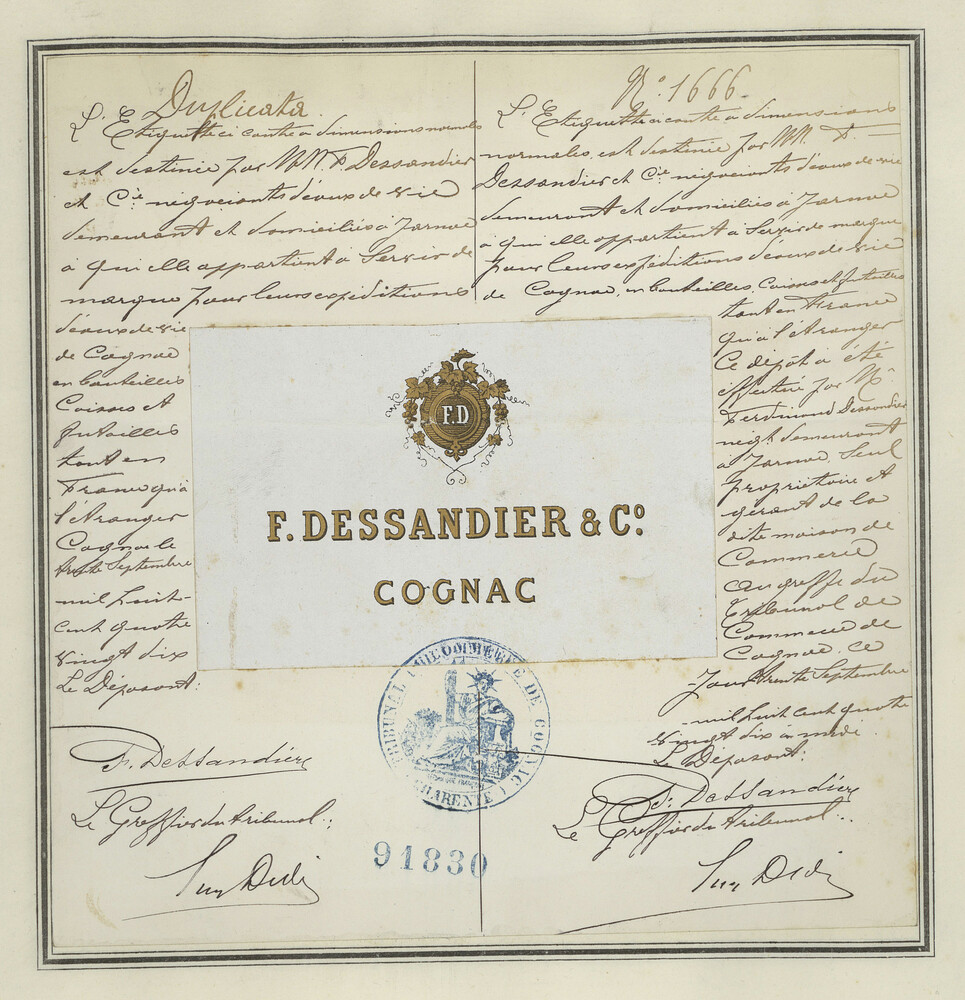 Duplicata
L'Etiquette ci contre à dimensions normales
est destinée par MM. F. Dessandier
et Cie négociants d'eaux de vie
demeurant et domiciliés à Jarnac
à qui elle appartient à Servir de
marque pour leurs expéditions
d'eaux de vie
de Cognac
en bouteilles
Caisses et
futailles
tant en
France qu'à
l'étranger
Cognac le
trente Septembre
mil huit
cent quatre
vingt dix
Le Déposant:
F. Dessandier
Le Greffier du tribunal:
No. 1666
L'Etiquette ci contre à dimensions
normales, est destinée par MM. F.
Dessandier et Cie négociants d'eaux de vie
demeurant et domiciliés à Jarnac
à qui elle appartient à Servir de marque
pour leurs expéditions d'eaux de vie
de Cognac, en bouteilles, Caisses et futailles
tant en France
qu'à l'étranger
Ce dépôt a été
effectué par Mr.
Ferdinand Dessandier
negt. demeurant
à Jarnac, Seul
propriétaire et
gérant de la
dite maison de
Commerce
au greffe du
Tribunal de
Commerce de
Cognac, ce
jour trente Septembre
mil huit cent quatre
vingt dix à midi.
Le Déposant:
F. Dessandier
Le Greffier du tribunal:
F.D
F. DESSANDIER & Co.
COGNAC
TRIBUNAL DE COMMERCE DE COGNAC
(CHARENTE)
91830